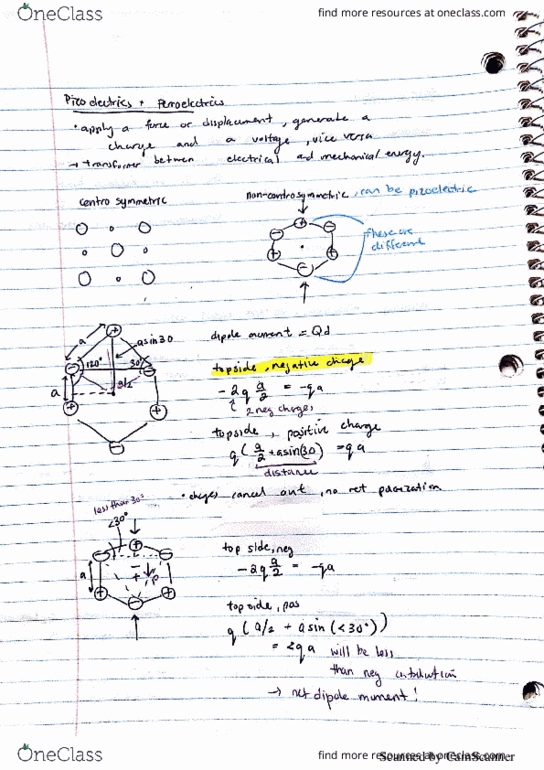 OneClass
find more resources at oneclass.com
Pizodectrics + Ferroelectrics
• apply a force or displacement, generate a
charge and a voltage, vice versa
→ transformer between electrical ad mechanical energy.
centro symmetric
non-centrosymmetric, can be pizoelectric
these are
different
a
asin30
120°
30°
a/2
a
dipole moment = Qd
topside, negative charge
-2q a/2 = -qa
2 neg charges
topside, positive charge
q(a/2 + asin(30) = qa
distance
• charges cancel out, no net polarization
less than 30°
<30°
a
P
top side, neg
-2q a/2 = -qa
topside, pos
q(a/2 + asin(<30°))
= <qa will be less
than neg contribution
→ net dipole moment!
OneClass
find more resources at oneclass.com
Scanned by CamScanner